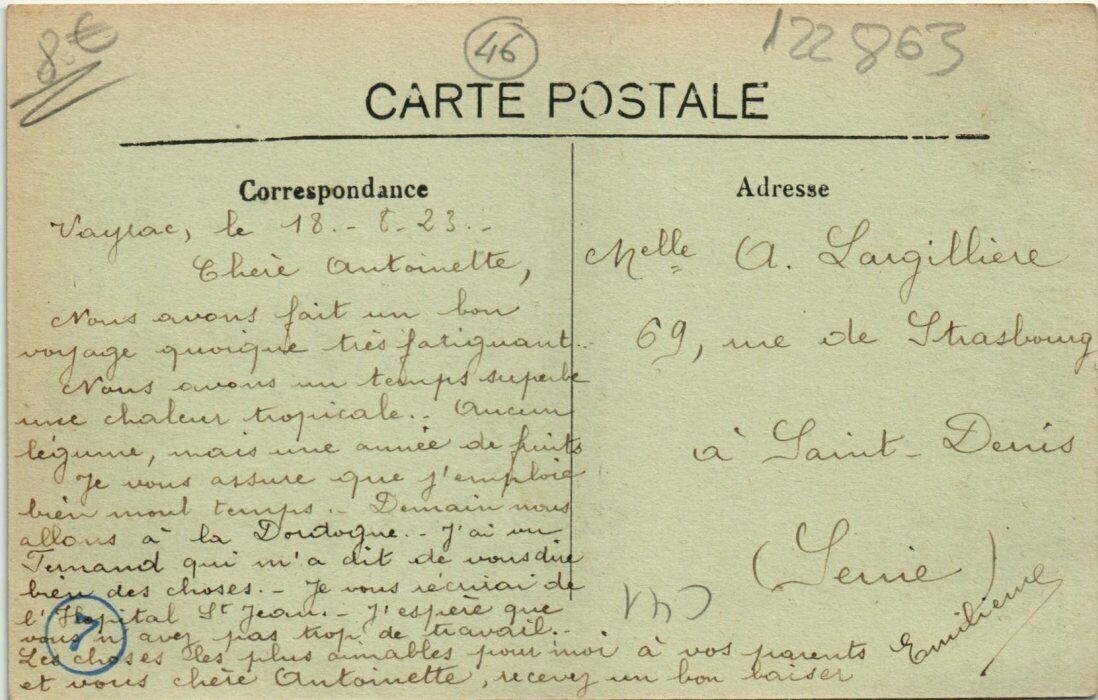 8€
46
122863
CARTE POSTALE
Correspondance
Vayrac, le 18.- 8-23.-
Chère Antoinette,
Nous avons fait un bon
voyage quoique très fatiguant..
Nous avons un temps superbe
une chaleur tropicale.. Aucun
légume, mais une année de fruits
Je vous assure que j'emploie
bien mont temps.. Demain nous
allons à la Dordogne.. J'ai vu
Fernand qui m'a dit de vous dire
bien des choses.- Je vous récrirai de
l'Hopital St Jean.- J'espère que
vous n'avez pas trop de travail..
Les choses les plus aimables pour moi à vos parents
et vous chère Antoinette, recevez un bon baiser
Emilienne
7
Adresse
Melle A. Largillière
69, rue de Strasbourg
à Saint-Denis
(Seine)